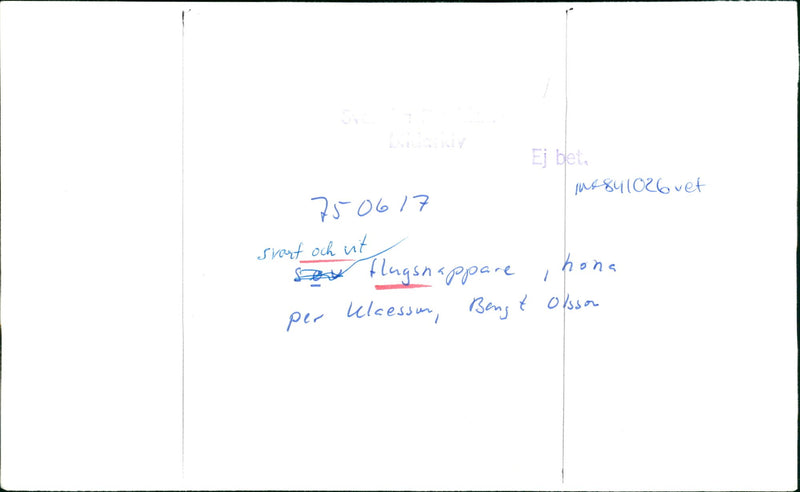 Ej bet.
841026 vet
750617
svart och vit
flugsnappare, hona
per Klaesson, Bengt Olsson